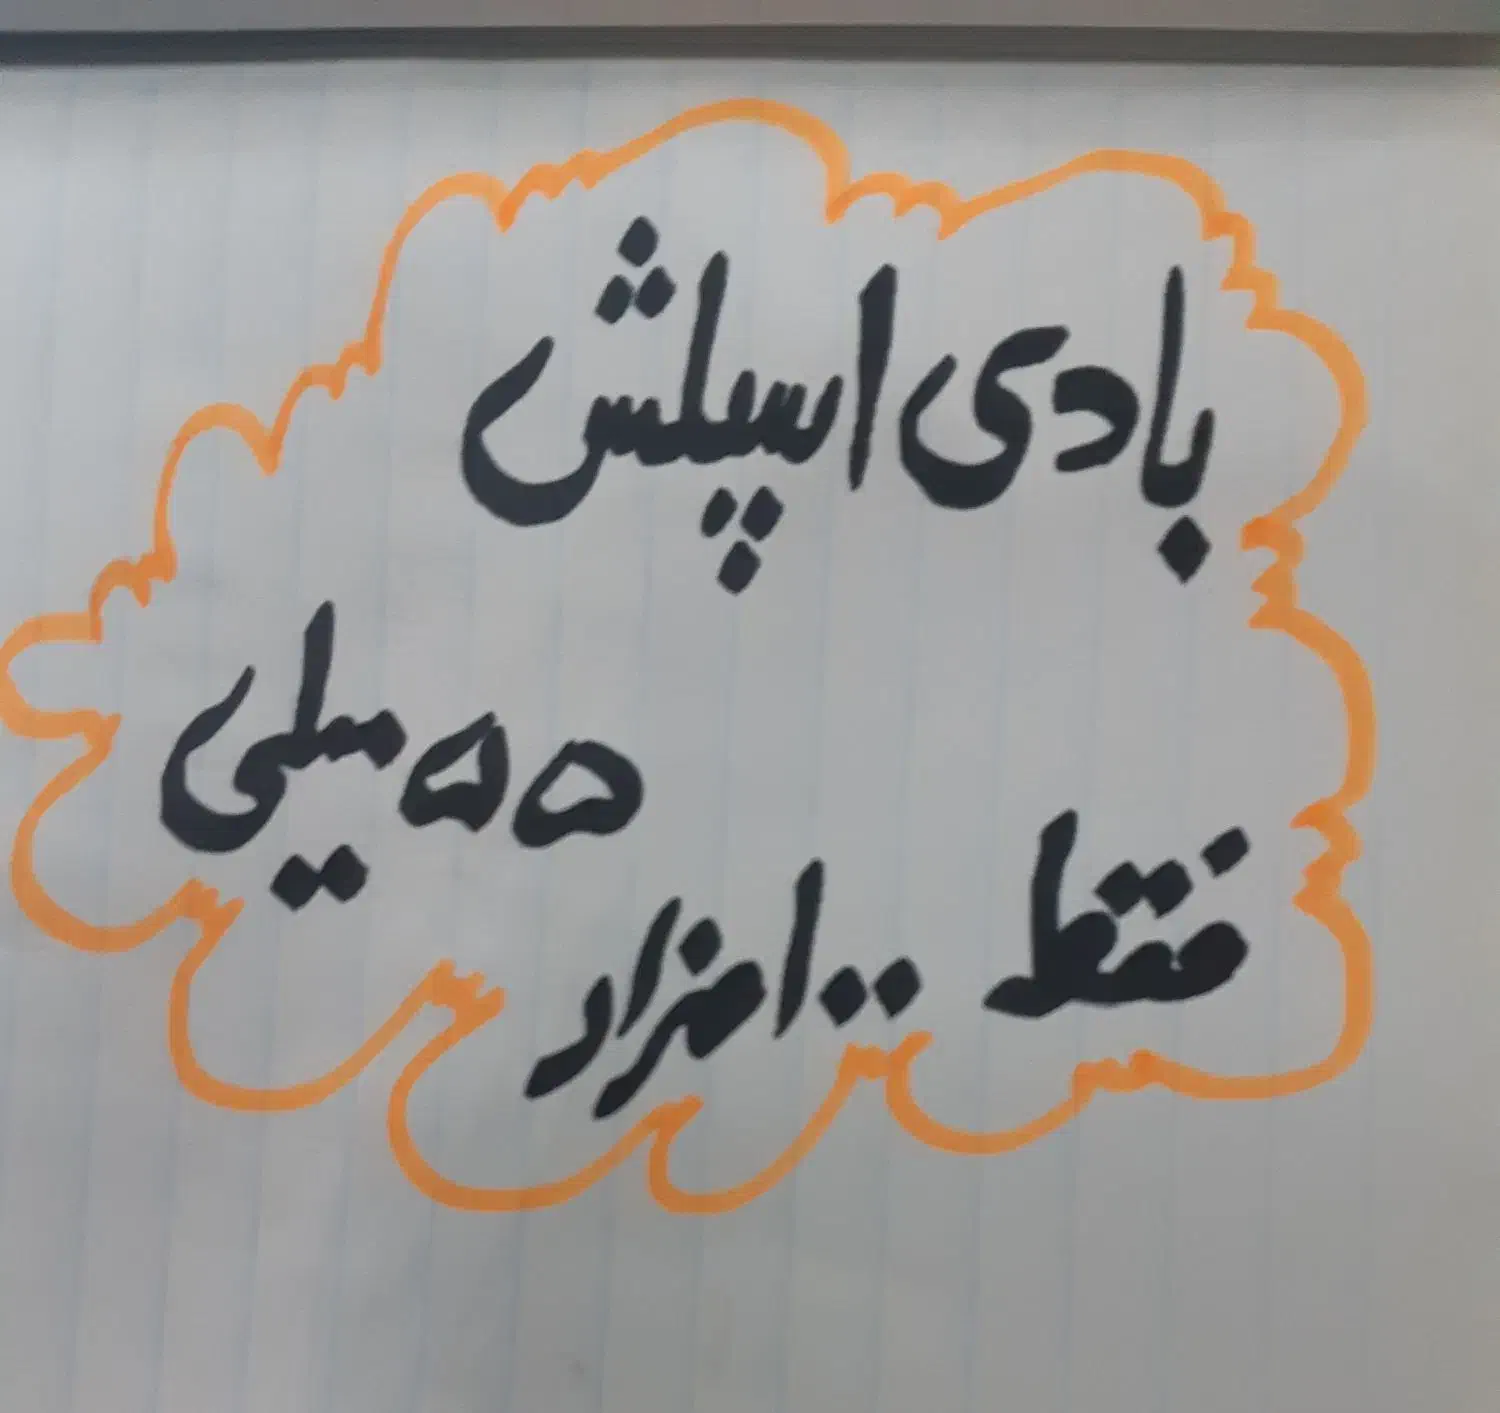 بادی اسپلش
۵۵ میلی
فقط ۱۰۰ هزار